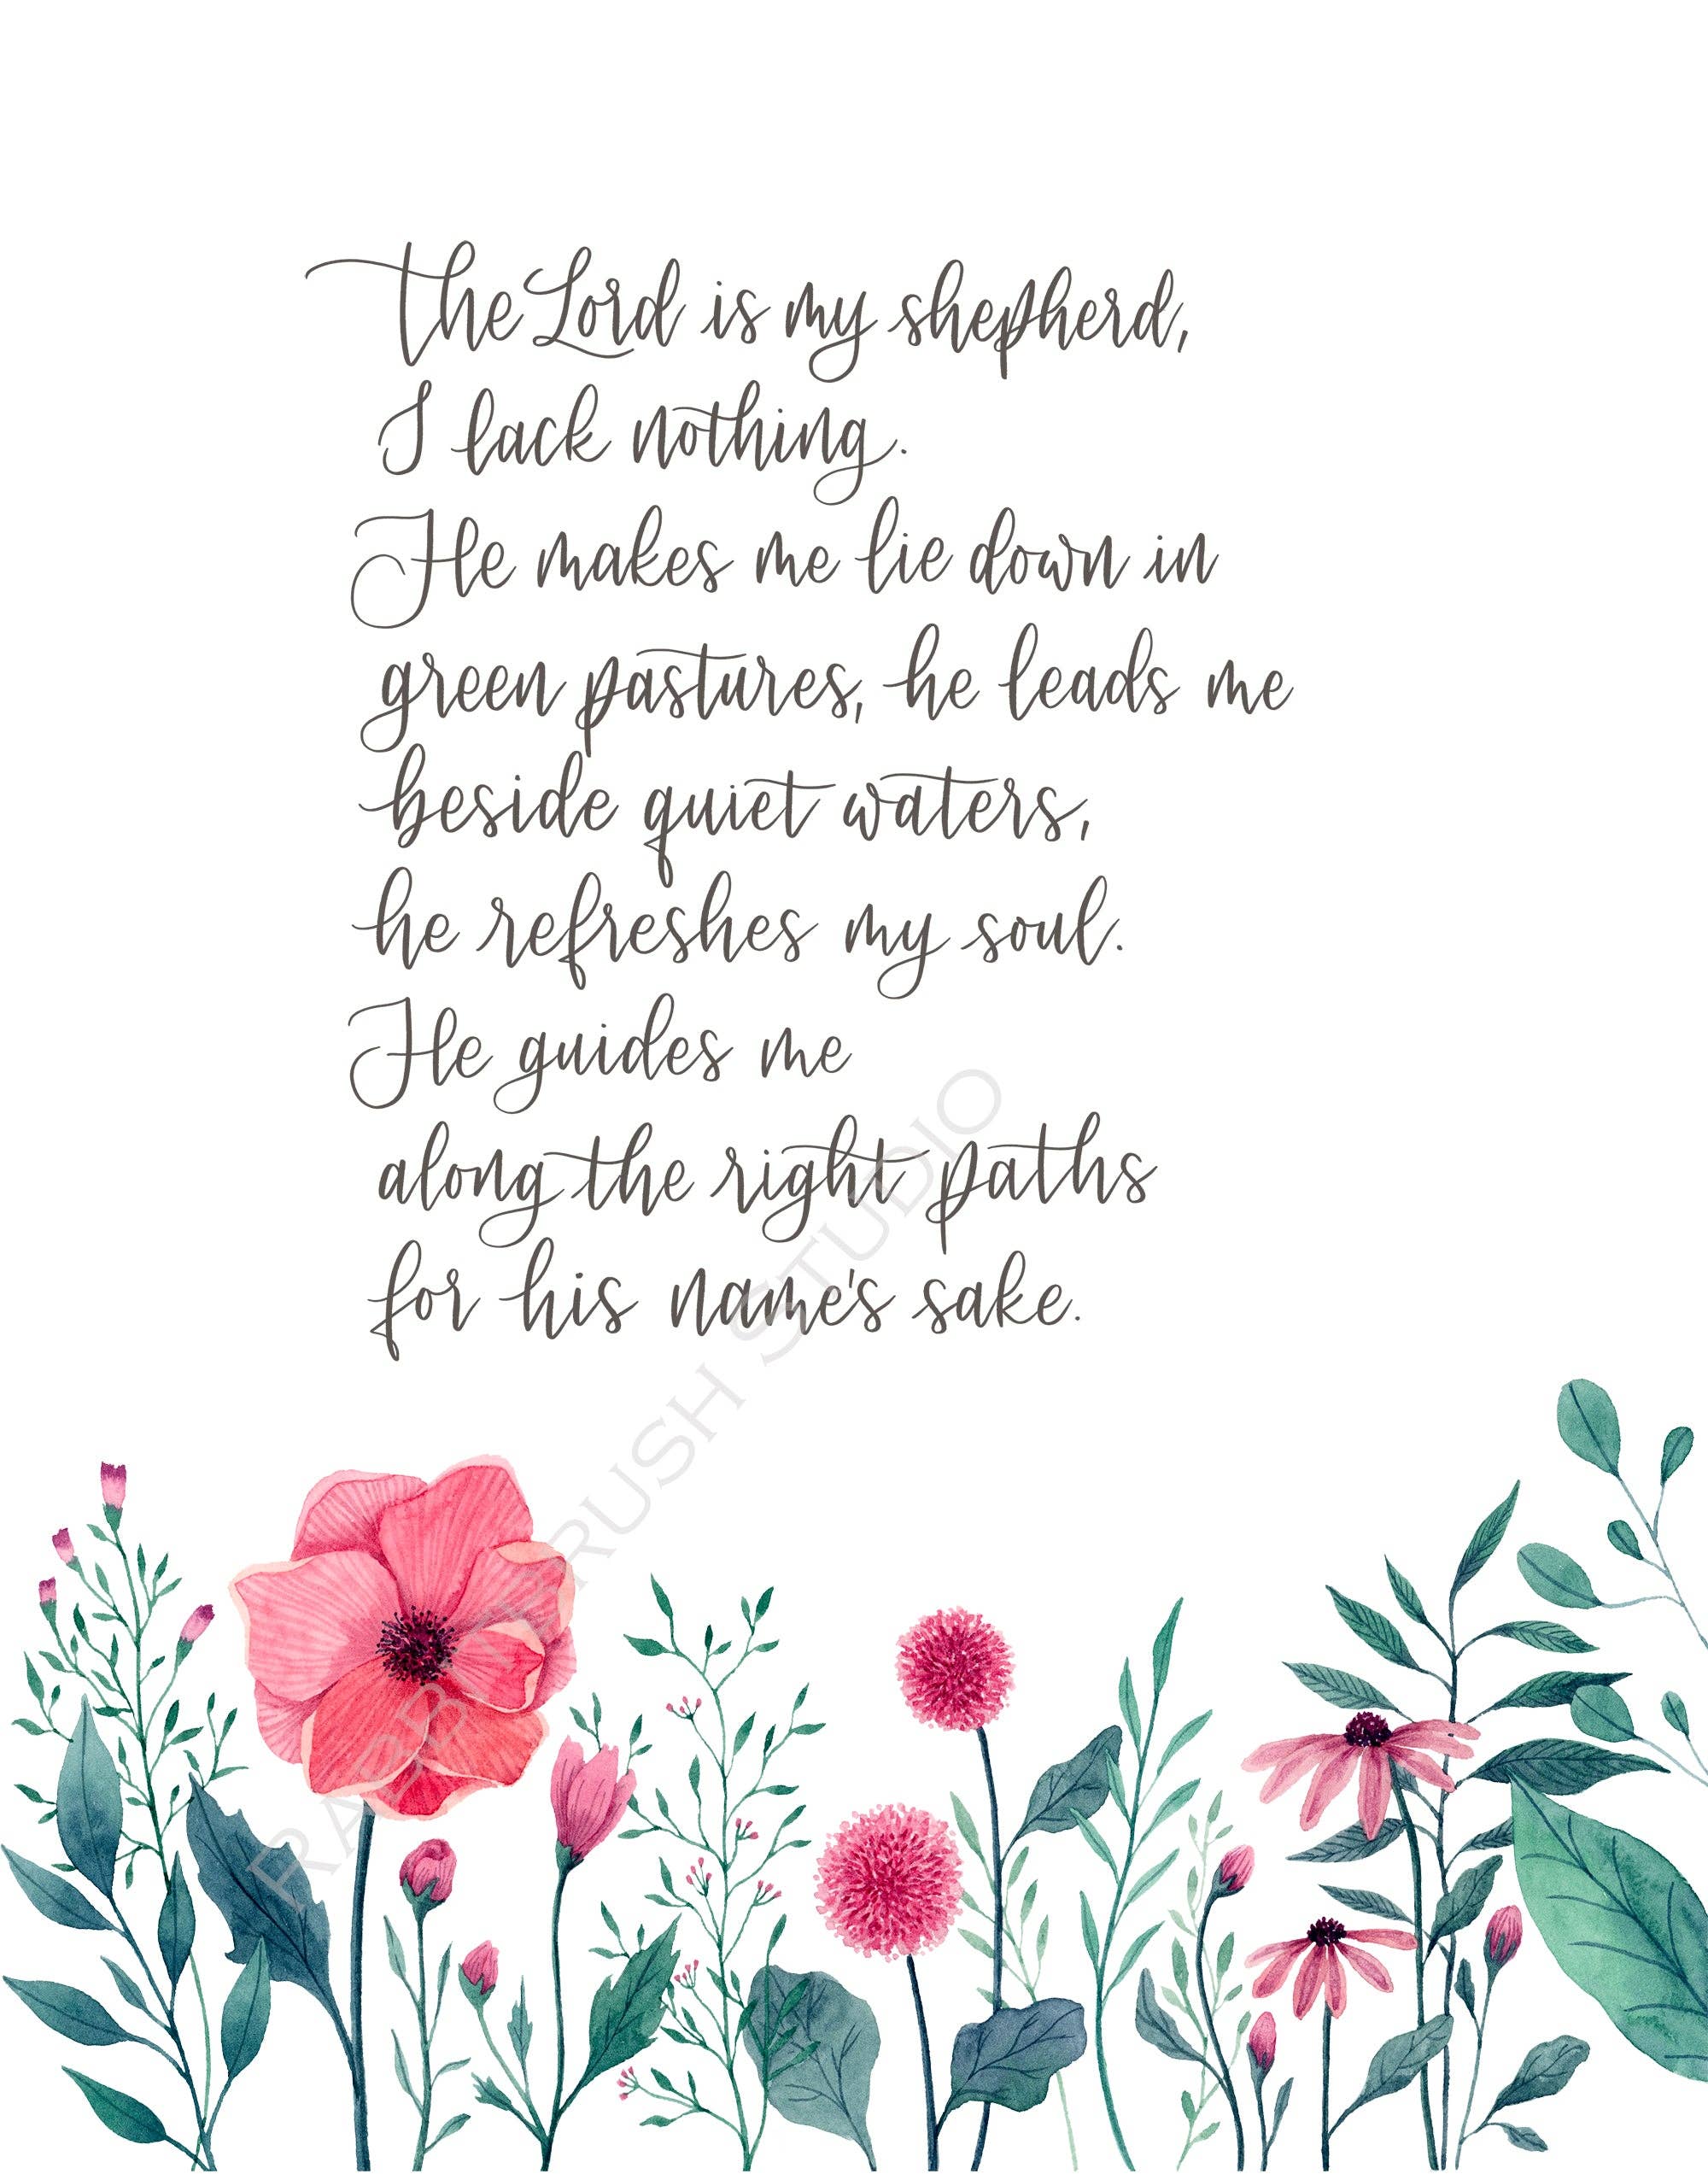 The Lord is my shepherd,
I lack nothing.
He makes me lie down in
green pastures, he leads me
beside quiet waters,
he refreshes my soul.
He guides me
along the right paths
for his name's sake.
STUDIO